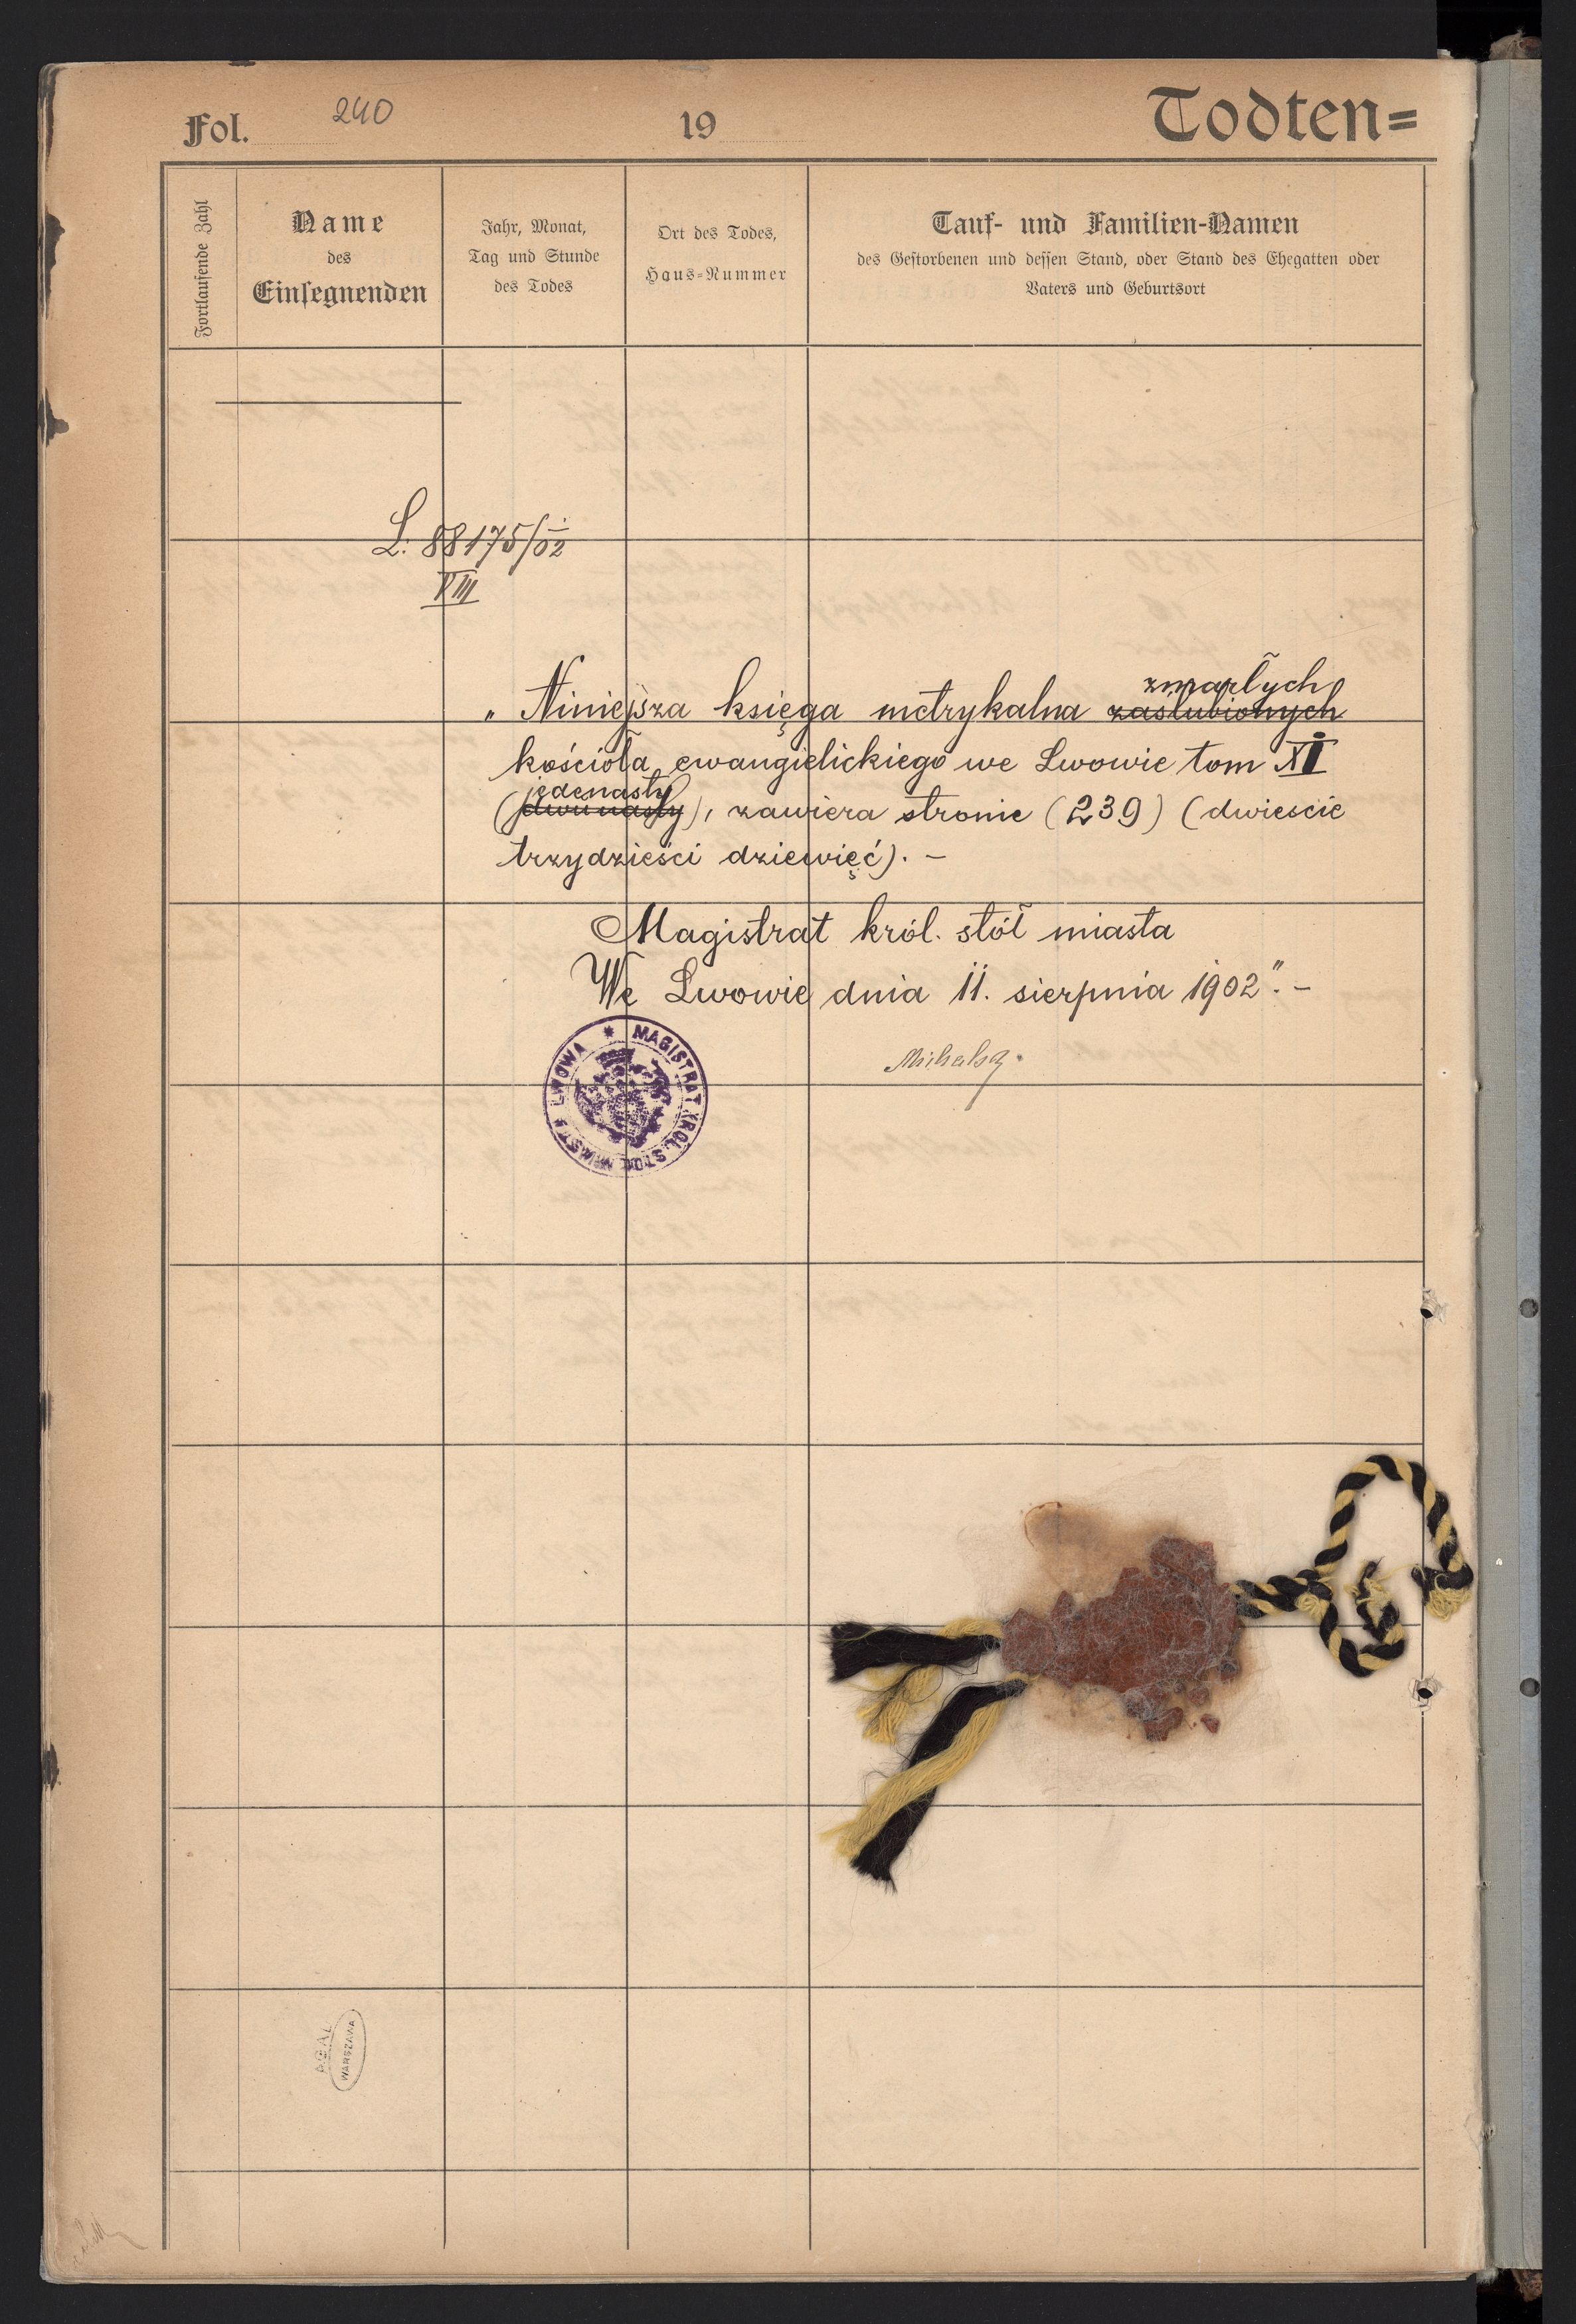 Fol. 240 19 Todten=
Fortlaufende Zahl
Name
des
Einsegnenden
Jahr, Monat,
Tag und Stunde
des Todes
Ort des Todes,
Haus-Nummer
Tauf- und Familien-Namen
des Gestorbenen und dessen Stand, oder Stand des Ehegatten oder
Vaters und Geburtsort
L: 88175/02
VIII
zmarłych
„Niniejsza księga metrykalna zaślubionych
kościoła ewangielickiego we Lwowie tom XI
jedenasty
(dwunasty), zawiera stronic (239) (dwieście
trzydzieści dziewięć). –
Magistrat król. stół miasta
We Lwowie dnia 11. sierpnia 1902". –
MAGISTRAT KRÓL. STOŁ. MIASTA LWOWA
AGAD
WARSZAWA